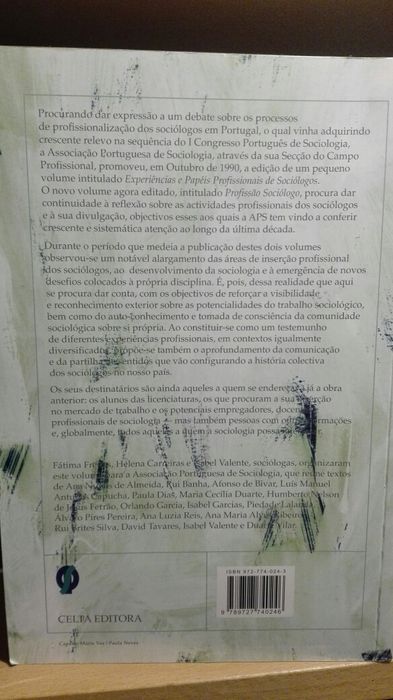 Procurando dar expressão a um debate sobre os processos
de profissionalização dos sociólogos em Portugal, o qual vinha adquirindo
crescente relevo na sequência do I Congresso Português de Sociologia,
a Associação Portuguesa de Sociologia, através da sua Secção do Campo
Profissional, promoveu, em Outubro de 1990, a edição de um pequeno
volume intitulado Experiências e Papéis Profissionais de Sociólogos.
O novo volume agora editado, intitulado Profissão Sociólogo, procura dar
continuidade à reflexão sobre as actividades profissionais dos sociólogos
e à sua divulgação, objectivos esses aos quais a APS tem vindo a conferir
crescente e sistemática atenção ao longo da última década.
Durante o período que medeia a publicação destes dois volumes
observou-se um notável alargamento das áreas de inserção profissional
dos sociólogos, ao desenvolvimento da sociologia e à emergência de novos
desafios colocados à própria disciplina. É, pois, dessa realidade que aqui
se procura dar conta, com os objectivos de reforçar a visibilidade
e reconhecimento exterior sobre as potencialidades do trabalho sociológico,
bem como do auto-conhecimento e tomada de consciência da comunidade
sociológica sobre si própria. Ao constituir-se como um testemunho
de diferentes experiências profissionais, em contextos igualmente
diversificados, propõe-se também o aprofundamento da comunicação
e da partilha de sentidos que vão configurando a história colectiva
dos sociólogos no nosso país.
Os seus destinatários são ainda aqueles a quem se endereçava já a obra
anterior: os alunos das licenciaturas, os que procuram a sua inserção
no mercado de trabalho e os potenciais empregadores, docentes e
profissionais de sociologia — mas também pessoas com outras formações
e, globalmente, todos aqueles a quem a sociologia possa interessar.
Fátima Freitas, Helena Carreiras e Isabel Valente, sociólogas, organizaram
este volume para a Associação Portuguesa de Sociologia, que reúne textos
de Ana Nunes de Almeida, Rui Banha, Afonso de Bivar, Luís Manuel
Antunes Capucha, Paula Dias, Maria Cecília Duarte, Humberto Nelson
de Jesus Ferrão, Orlando Garcia, Isabel Garcias, Piedade Lalanda,
Álvaro Pires Pereira, Ana Luzia Reis, Ana Maria Ribeiro,
Rui Brites Silva, David Tavares, Isabel Valente e Duarte Vilar.
ISBN 972-774-024-3
9 789727 740246
CELTA EDITORA
Capa: Mário Vaz / Paula Neves